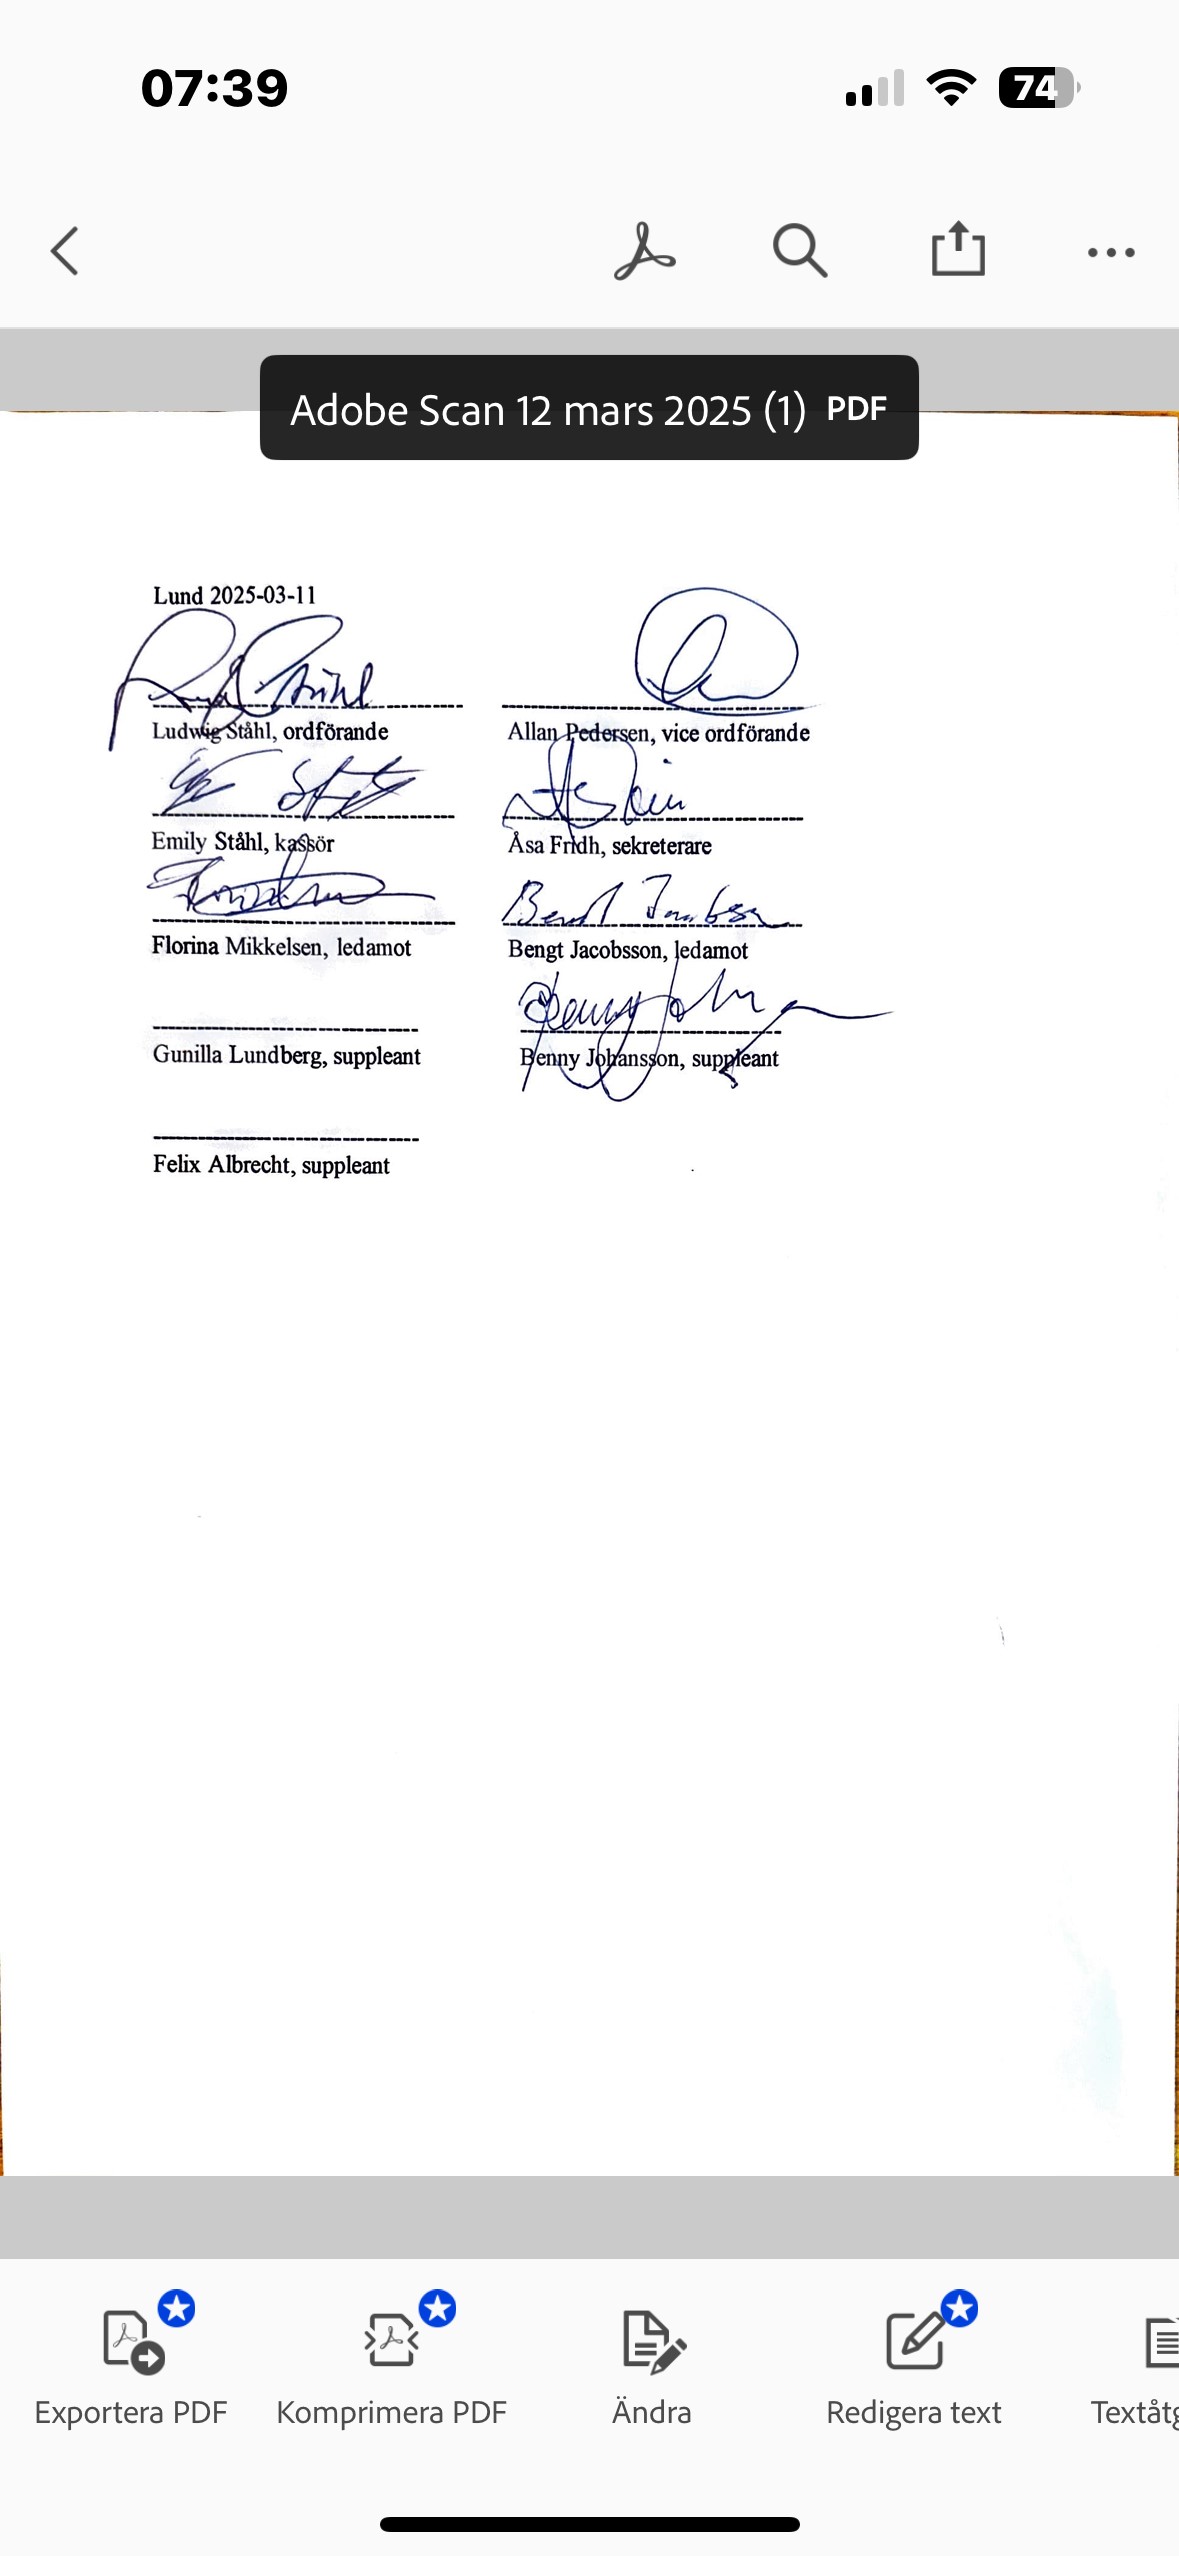 07:39
74
Adobe Scan 12 mars 2025 (1) PDF
Lund 2025-03-11
Ludwig Ståhl, ordförande
Allan Pedersen, vice ordförande
Emily Ståhl, kassör
Åsa Fridh, sekreterare
Florina Mikkelsen, ledamot
Bengt Jacobsson, ledamot
Gunilla Lundberg, suppleant
Benny Johansson, suppleant
Felix Albrecht, suppleant
Exportera PDF
Komprimera PDF
Ändra
Redigera text